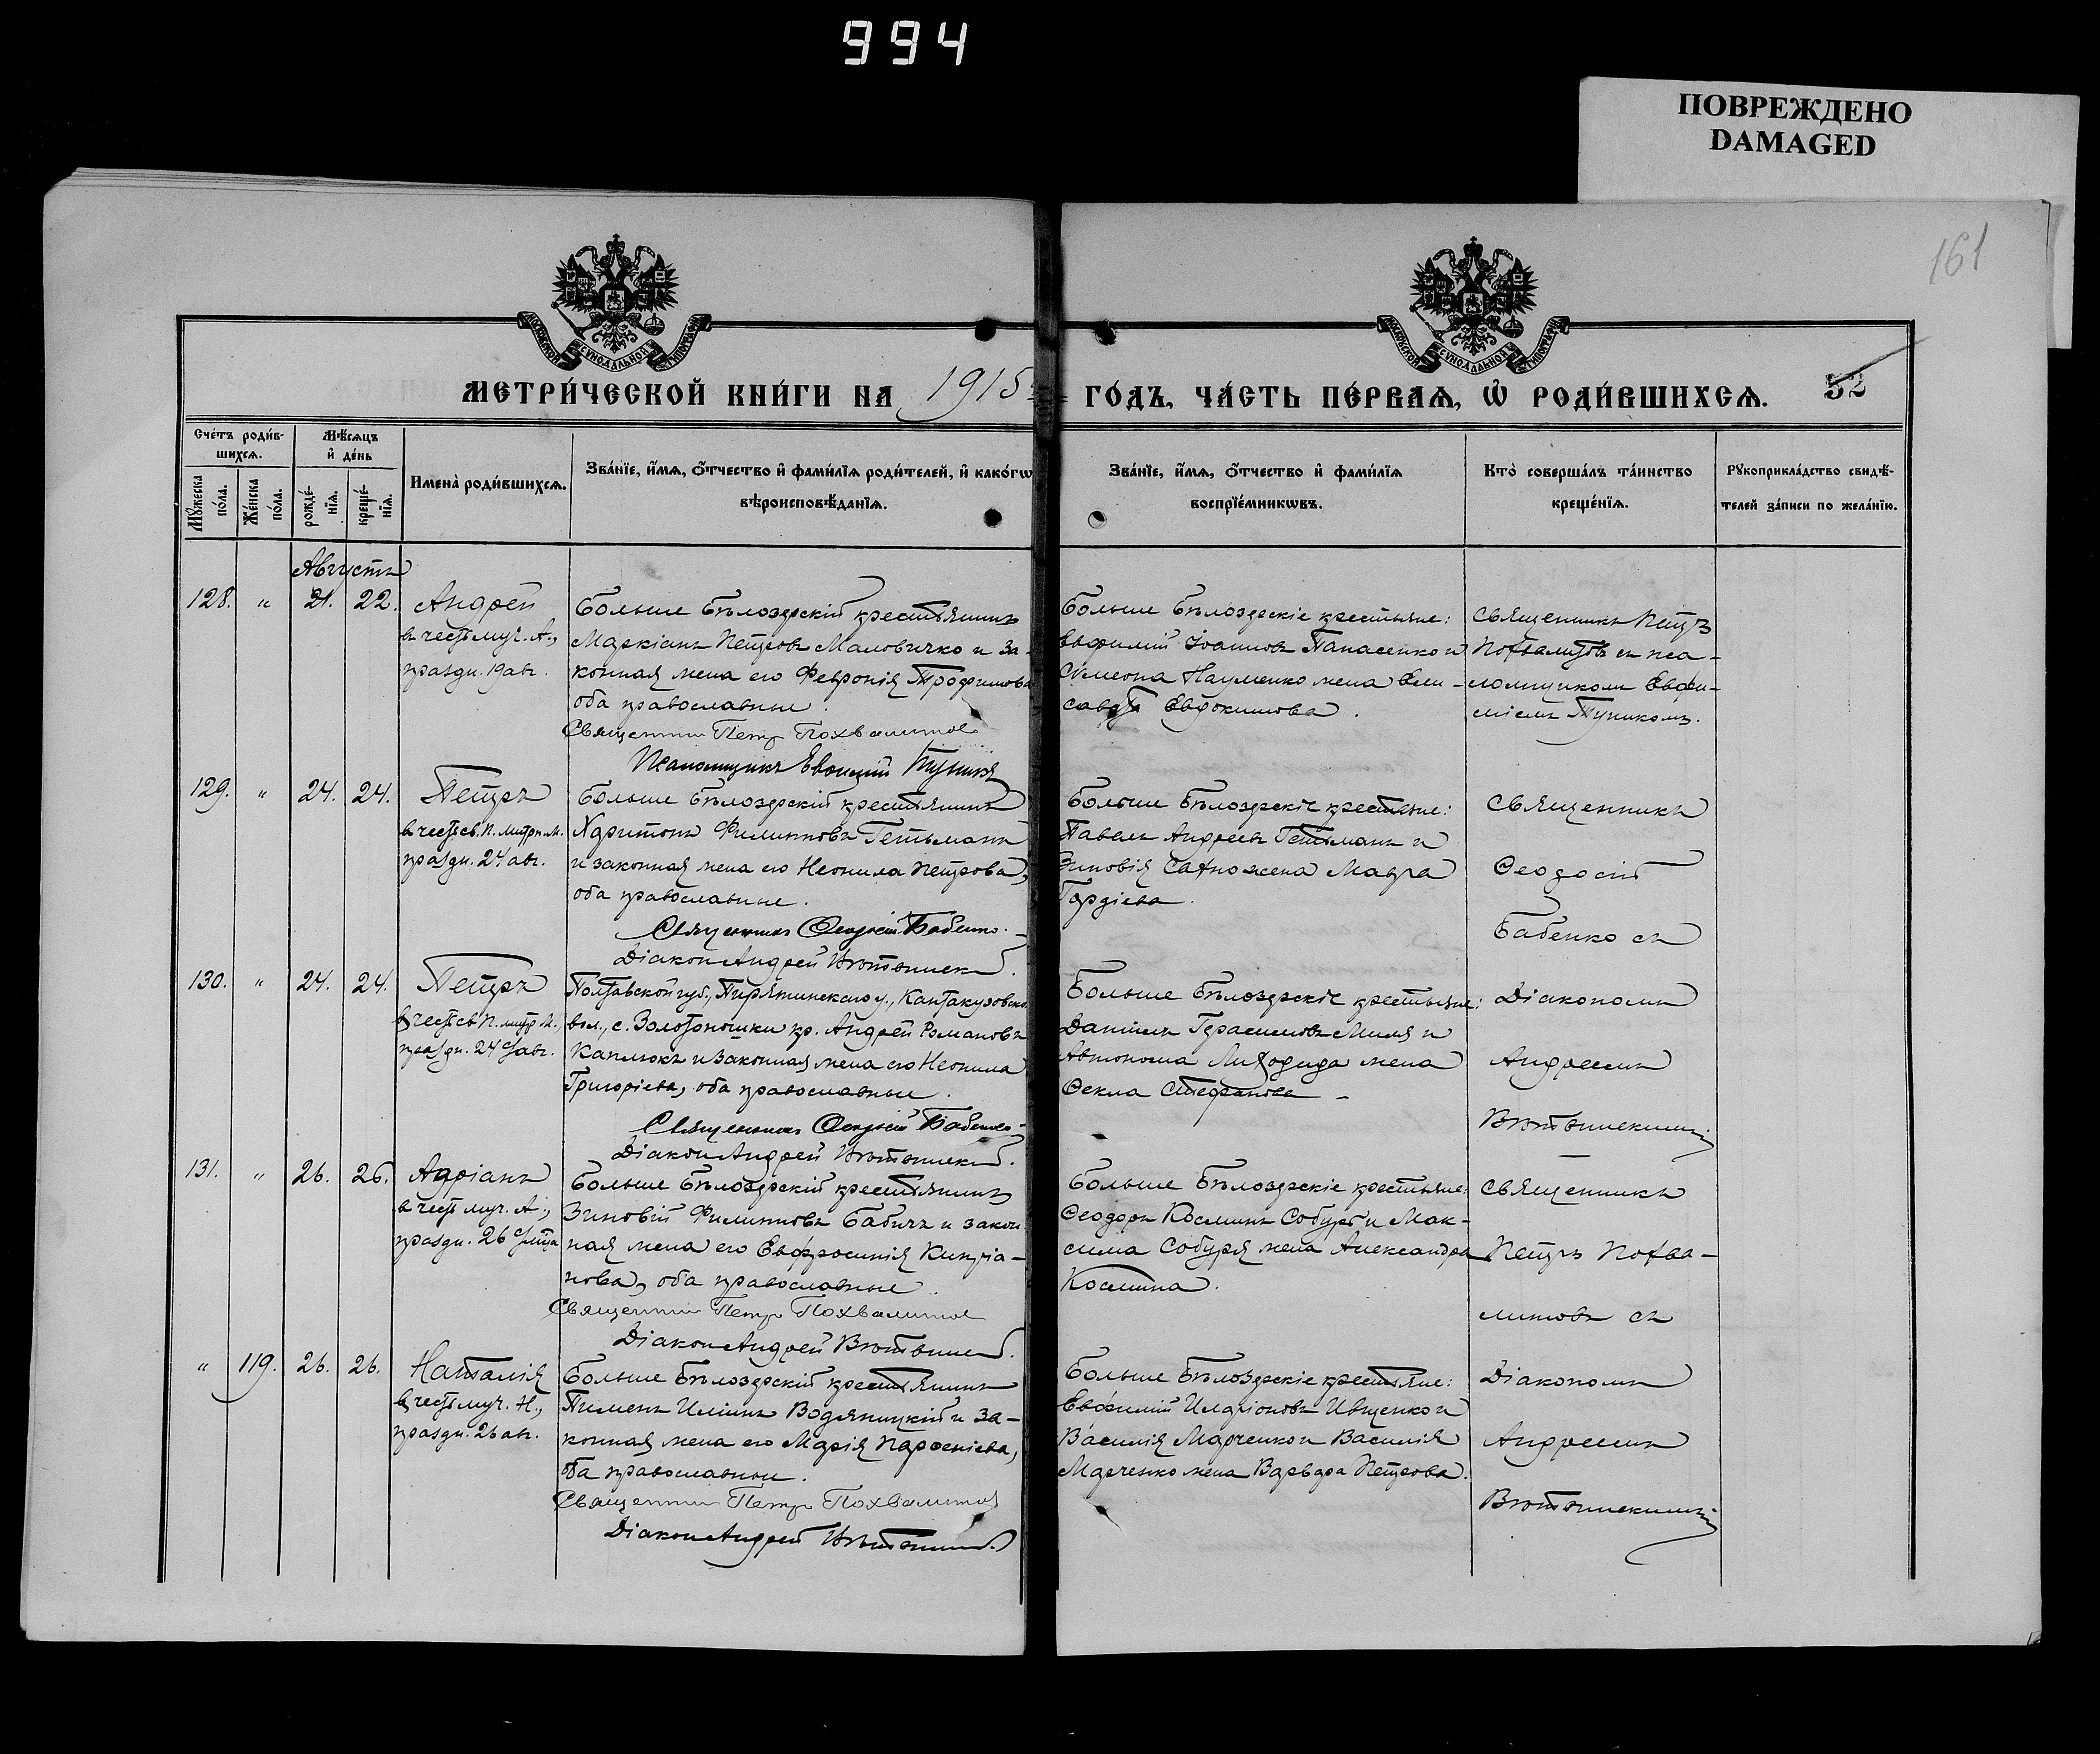 994
ПОВРЕЖДЕНО
DAMAGED
161
МОСКОВСКОЙ СѴНОДАЛЬНОЙ ТИПОГРАФІИ
МОСКОВСКОЙ СѴНОДАЛЬНОЙ ТИПОГРАФІИ
МЕТРИ́ЧЕСКОЙ КНИ́ГИ НА 1915 ГО́ДЪ, ЧА́СТЬ ПЕ́РВАѦ, Ѡ҆ РОДИ́ВШИХСѦ. 52
Сче́тъ роди́в-
шихсѧ.
Мѣ́сѧцъ
и҆ де́нь
Мꙋ́жеска
по́ла.
Же́нска
по́ла.
рожде́-
нїѧ.
креще́-
нїѧ.
Имена̀ роди́вшихсѧ.
Зва́нїе, и҆́мѧ, ѻ҆́тчество и҆ фами́лїѧ роди́телей, и҆ како́гѡ
вѣроисповѣ́данїѧ.
Зва́нїе, и҆́мѧ, ѻ҆́тчество и҆ фами́лїѧ
воспрїе́мникѡвъ.
Кто̀ соверша́лъ та́инство
креще́нїѧ.
Рꙋкоприкла́дство свидѣ́-
телей за́писи по жела́нїю.
Августъ
128. " 21. 22. Андрей
в честь муч. А.,
праздн. 19 авг.
Больше Бѣлозерскій крестьянинъ
Маркіанъ Петровъ Маловичко и за-
конная жена его Февронія Трофимова
оба православные.
Священник Петр Похвалитов
Псаломщикъ Евфимій Тупикъ
Больше Бѣлозерскіе крестьяне:
Евфимій Іоанновъ Панасенко и
Сѵмеона Науменко жена Ели-
савета Евдокимова.
Священникъ Петръ
Похвалитовъ съ пса-
ломщикомъ Евфи-
міемъ Тупикомъ.
129. " 24. 24. Петръ
в честь св. П. митр. М.
праздн. 24 авг.
Больше Бѣлозерскій крестьянинъ
Харитонъ Филипповъ Гетьманъ
и законная жена его Неонила Петрова,
оба православные.
Священникъ Ѳеодосій Бабенко.
Діаконъ Андрей
Больше Бѣлозерскіе крестьяне:
Павелъ Андреевъ Гетьманъ и
Зиновія жена Мавра
Гордіева.
Священникъ
Ѳеодосій
Бабенко съ
130. " 24. 24. Петръ
в честь св. П. митр. М.,
праздн. 24 авг.
Полтавской губ., Пирятинскаго у., Кантакузовской
вол., с. Золотоношки кр. Андрей Романовъ
Каплюкъ и законная жена его Неонила
Григорьева, оба православные.
Священникъ Ѳеодосій Бабенко
Діаконъ Андрей
Больше Бѣлозерскіе крестьяне:
Даніилъ Герасимовъ Миля и
Автонома Лиходида жена
Ѳекла Стефанова
Діакономъ
Андреемъ
131. " 26. 26. Адріанъ
в честь муч. А.,
праздн. 26 авг.
Больше Бѣлозерскій крестьянинъ
Зиновій Филипповъ Бабичъ и закон-
ная жена его Евфросинія Кипріа-
нова, оба православные.
Священник Петр Похвалитов
Діаконъ Андрей
Больше Бѣлозерскіе крестьяне:
Ѳеодоръ Косминъ Собуръ и Мак-
сима Собуря жена Александра
Космина.
Священникъ
Петръ Похва-
литовъ съ
" 119. 26. 26. Наталія
в честь муч. Н.,
праздн. 26 авг.
Больше Бѣлозерскій крестьянинъ
Пименъ Иліинъ Водяницкій и за-
конная жена его Марія Парѳеніева,
оба православные.
Священник Петр Похвалитов
Діаконъ Андрей
Больше Бѣлозерскіе крестьяне:
Евфимій Иларіоновъ Ивщенко и
Василія Марченко и Василія
Марченко жена Варвара Петрова.
Діакономъ
Андреемъ